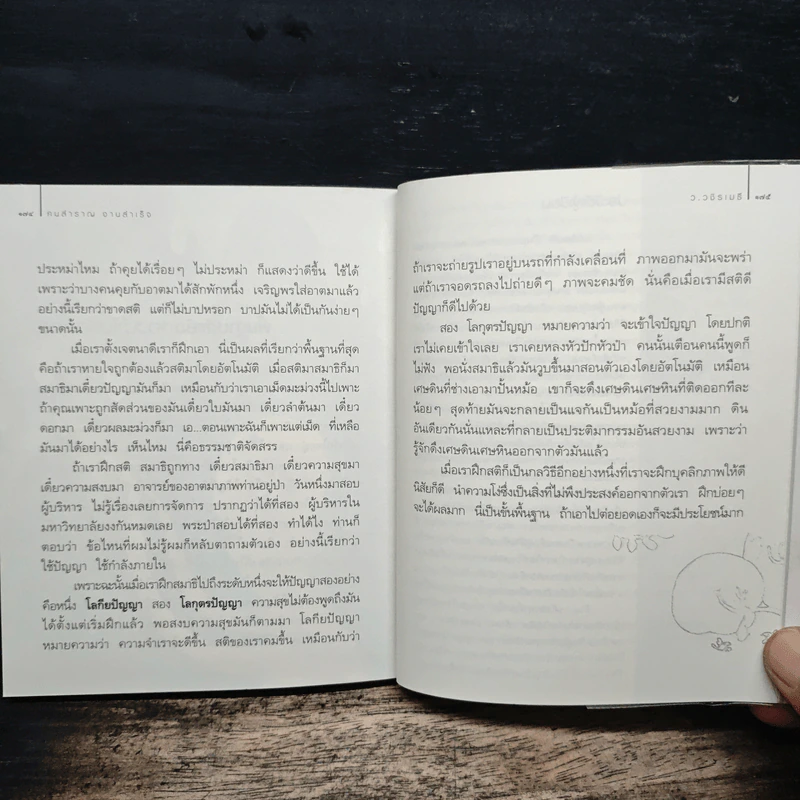 ๑๗๔ คนสำราญ งานสำเร็จ
ประหม่าไหม ถ้าคุยได้เรื่อยๆ ไม่ประหม่า ก็แสดงว่าดีขึ้น ใช้ได้
เพราะว่าบางคนคุยกับอาตมาได้สักพักหนึ่ง เจริญพรใส่อาตมาแล้ว
อย่างนี้เรียกว่าขาดสติ แต่ก็ไม่บาปหรอก บาปมันไม่ได้เป็นกันง่ายๆ
ขนาดนั้น
เมื่อเราตั้งเจตนาดีเราก็ฝึกเอา นี่เป็นผลที่เรียกว่าพื้นฐานที่สุด
คือถ้าเราหายใจถูกต้องแล้วสติมาโดยอัตโนมัติ เมื่อสติมาสมาธิก็มา
สมาธิมาเดี๋ยวปัญญามันก็มา เหมือนกับว่าเราเอาเม็ดมะม่วงนี้ไปเพาะ
ถ้าคุณเพาะถูกสัดส่วนของมันเดี๋ยวใบมันมา เดี๋ยวลำต้นมา เดี๋ยว
ดอกมา เดี๋ยวผลมะม่วงก็มา เอ...ตอนเพาะฉันก็เพาะแต่เม็ด ที่เหลือ
มันมาได้อย่างไร เห็นไหม นี่คือธรรมชาติจัดสรร
ถ้าเราฝึกสติ สมาธิถูกทาง เดี๋ยวสมาธิมา เดี๋ยวความสุขมา
เดี๋ยวความสงบมา อาจารย์ของอาตมาภาพท่านอยู่ป่า วันหนึ่งมาสอบ
ผู้บริหาร ไม่รู้เรื่องเลยการจัดการ ปรากฏว่าได้ที่สอง ผู้บริหารใน
มหาวิทยาลัยงงกันหมดเลย พระป่าสอบได้ที่สอง ทำได้ไง ท่านก็
ตอบว่า ข้อไหนที่ผมไม่รู้ผมก็หลับตาถามตัวเอง อย่างนี้เรียกว่า
ใช้ปัญญา ใช้กำลังภายใน
เพราะฉะนั้นเมื่อเราฝึกสมาธิไปถึงระดับหนึ่งจะให้ปัญญาสองอย่าง
คือหนึ่ง โลกียปัญญา สอง โลกุตรปัญญา ความสุขไม่ต้องพูดถึงมัน
ได้ตั้งแต่เริ่มฝึกแล้ว พอสงบความสุขมันก็ตามมา โลกียปัญญา
หมายความว่า ความจำเราจะดีขึ้น สติของเราคมขึ้น เหมือนกับว่า
ว.วชิรเมธี ๑๗๕
ถ้าเราจะถ่ายรูปเราอยู่บนรถที่กำลังเคลื่อนที่ ภาพออกมามันจะพร่า
แต่ถ้าเราจอดรถลงไปถ่ายดีๆ ภาพจะคมชัด นั่นคือเมื่อเรามีสติดี
ปัญญาก็ดีไปด้วย
สอง โลกุตรปัญญา หมายความว่า จะเข้าใจปัญญา โดยปกติ
เราไม่เคยเข้าใจเลย เราเคยหลงหัวปักหัวปำ คนนั้นเตือนคนนี้พูดก็
ไม่ฟัง พอนั่งสมาธิแล้วมันวูบขึ้นมาสอนตัวเองโดยอัตโนมัติ เหมือน
เศษดินที่ช่างเอามาปั้นหม้อ เขาก็จะดึงเศษดินเศษหินที่ติดออกทีละ
น้อยๆ สุดท้ายมันจะกลายเป็นแจกันเป็นหม้อที่สวยงามมาก ดิน
อันเดียวกันนั่นแหละที่กลายเป็นประติมากรรมอันสวยงาม เพราะว่า
รู้จักดึงเศษดินเศษหินออกจากตัวมันแล้ว
เมื่อเราฝึกสติก็เป็นกลวิธีอีกอย่างหนึ่งที่เราจะฝึกบุคลิกภาพให้ดี
นิสัยก็ดี นำความโง่ซึ่งเป็นสิ่งที่ไม่พึงประสงค์ออกจากตัวเรา ฝึกบ่อยๆ
จะได้ผลมาก นี่เป็นขั้นพื้นฐาน ถ้าเอาไปต่อยอดเองก็จะมีประโยชน์มาก